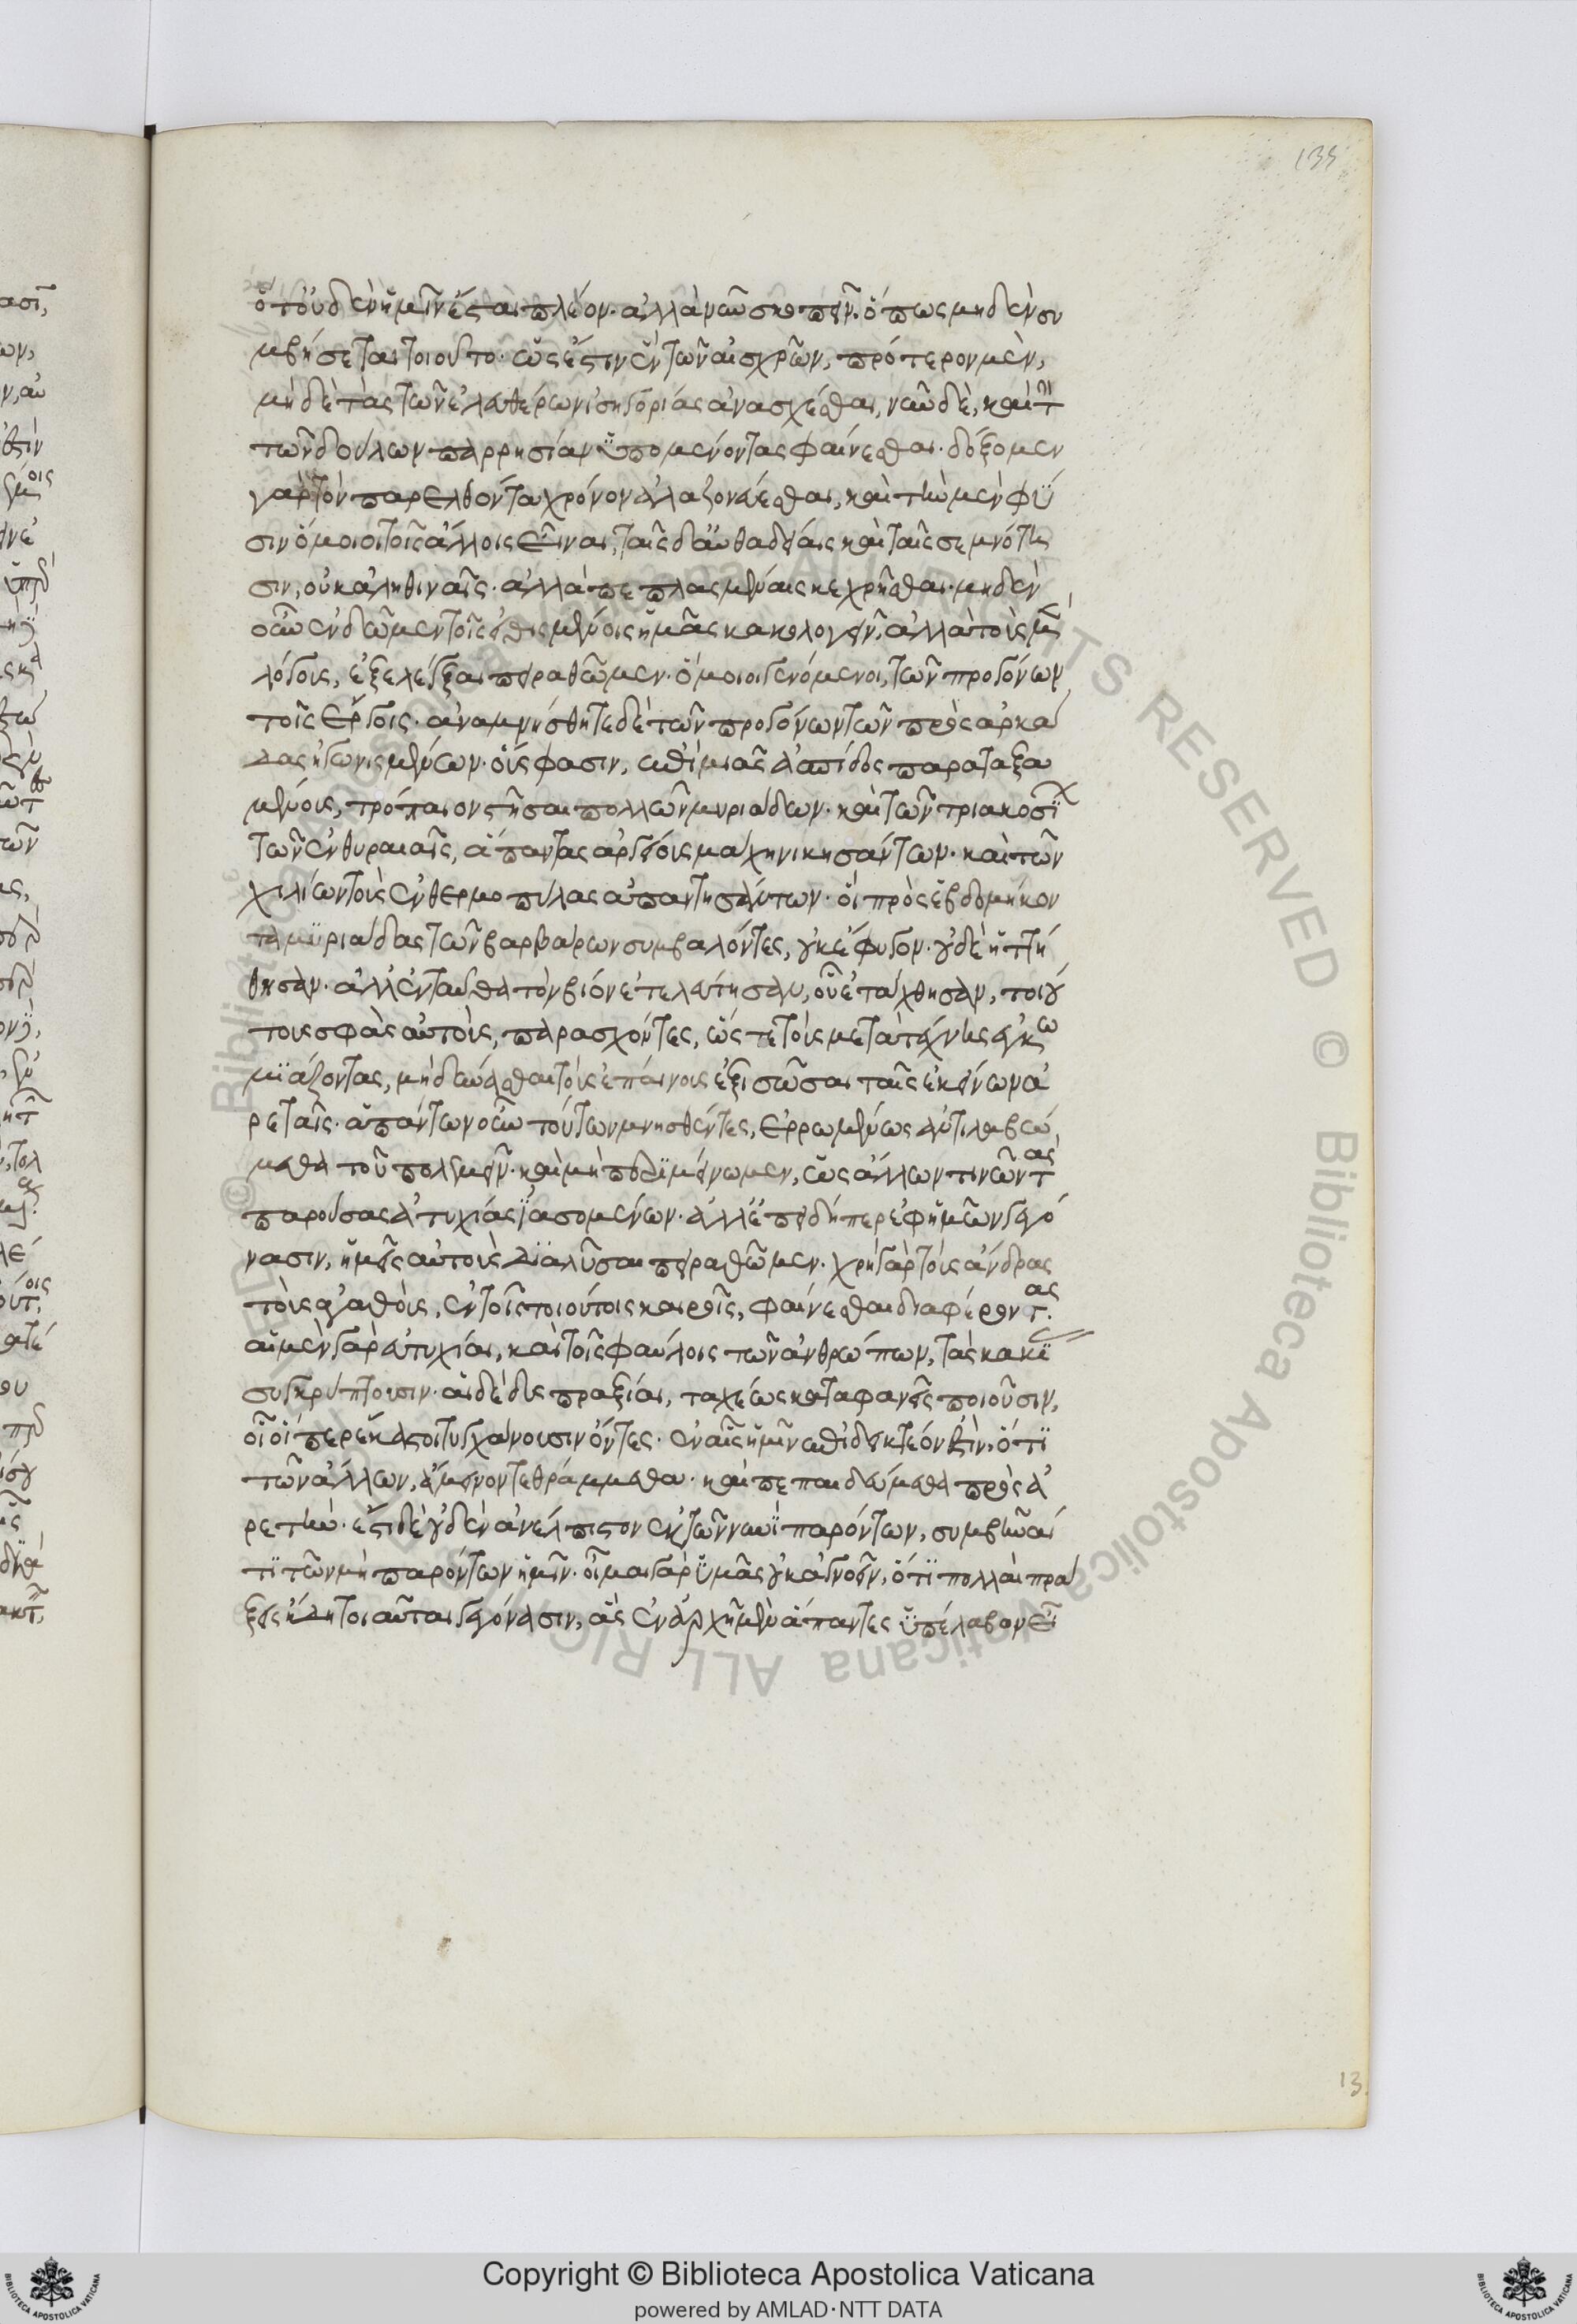 ὅτ' οὐδὲν ἡμῖν ἔσται πλέον· ἀλλὰ νῦν σκοπεῖν· ὅπως μηδὲν συ
μβήσεται τοιοῦτο· ὥς ἐστιν ἓν τῶν αἰσχρῶν, πρότερον μὲν,
μηδὲ τὰς τῶν ἐλευθέρων ἰσηγορίας ἀνασχέσθαι, νῦν δὲ, καὶ τὴν
τῶν δούλων παρρησίαν ὑπομένοντας φαίνεσθαι· δόξομεν
γὰρ τὸν παρελθόντα χρόνον ἀλαζονεύεσθαι, καὶ τὴν μὲν φύ
σιν ὅμοιοι τοῖς ἄλλοις εἶναι, ταῖς δ' αὐθαδείαις καὶ ταῖς σεμνότη
σιν, οὐκ ἀληθιναῖς· ἀλλὰ πεπλασμέναις κεχρῆσθαι· μηδὲν
οὖν ἐνδῶμεν τοῖς εἰθισμένοις ἡμᾶς κακολογεῖν, ἀλλὰ τοὺς
λόγους, ἐξελέγξαι πειραθῶμεν· ὅμοιοι γενόμενοι, τῶν προγόνων
τοῖς ἔργοις· ἀναμνήσθητε δὲ τῶν προγόνων τῶν πρὸς ἀρκά
δας ἠγωνισμένων· οὕς φασιν, ἐπὶ μιᾶς ἀσπίδος παραταξα
μένους, τρόπαιον στῆσαι πολλῶν μυριάδων· καὶ τῶν τριακοσί
τῶν ἐν θυραιαῖς, ἅπαντας ἀργείους μάχῃ νικησάντων· καὶ τῶν
χιλίων τοὺς ἐν θερμοπύλας ἀπαντησάντων· οἳ πρὸς ἑβδομήκον
τα μυριάδας τῶν βαρβάρων συμβαλόντες, οὐκ ἔφυγον· οὐδὲ ἡττή
θησαν· ἀλλ' ἐνταῦθα τὸν βίον ἐτελεύτησαν, οὗ ἐτάχθησαν, τοιού
τους σφᾶς αὐτοὺς, παρασχόντες, ὥστε τοὺς μετὰ τέχνης ἐγκω
μιάζοντας, μὴ δύνασθαι τοὺς ἐπαίνους ἐξισῶσαι ταῖς ἐκείνων ἀ
ρεταῖς· ἁπάντων οὖν τούτων μνησθέντες, ἐρρωμένως ἀντιλαβώ
μεθα τοῦ πολεμεῖν· καὶ μὴ περιμένωμεν, ὡς ἄλλων τινῶν τὰς
παρούσας ἀτυχίας ἰασομένων· ἀλλ' ἐπειδήπερ ἐφ' ἡμῶν γεγό
νασιν, ἡμεῖς αὐτοὺς διαλῦσαι πειραθῶμεν· χρὴ γὰρ τοὺς ἄνδρας
τοὺς ἀγαθοὺς, ἐν τοῖς τοιούτοις καιροῖς, φαίνεσθαι διαφέροντας·
αἱ μὲν γὰρ εὐτυχίαι, καὶ τοῖς φαύλοις τῶν ἀνθρώπων, τὰς κακί
συγκρύπτουσιν· αἱ δὲ δυσπραξίαι, ταχέως καταφανεῖς ποιοῦσιν,
οἷοί περ ἕκαστοι τυγχάνουσιν ὄντες· ἐν αἷς ἡμῖν ἐπιδεικτέον ἐστὶν, ὅτι
τῶν ἄλλων, ἄμεινον τεθράμμεθα· καὶ πεπαιδεύμεθα πρὸς ἀ
ρετὴν· ἔστι δὲ οὐδὲν ἀνέλπιστον ἐκ τῶν νυνὶ παρόντων, συμβῆναί
τι τῶν μὴ παρόντων ἡμῖν· οἶμαι γὰρ ὑμᾶς οὐκ ἀγνοεῖν, ὅτι πολλαὶ πρά
ξεις ἤδη τοιαῦται γεγόνασιν, ἃς ἐν ἀρχῇ μὲν ἅπαντες ὑπέλαβον εἶ